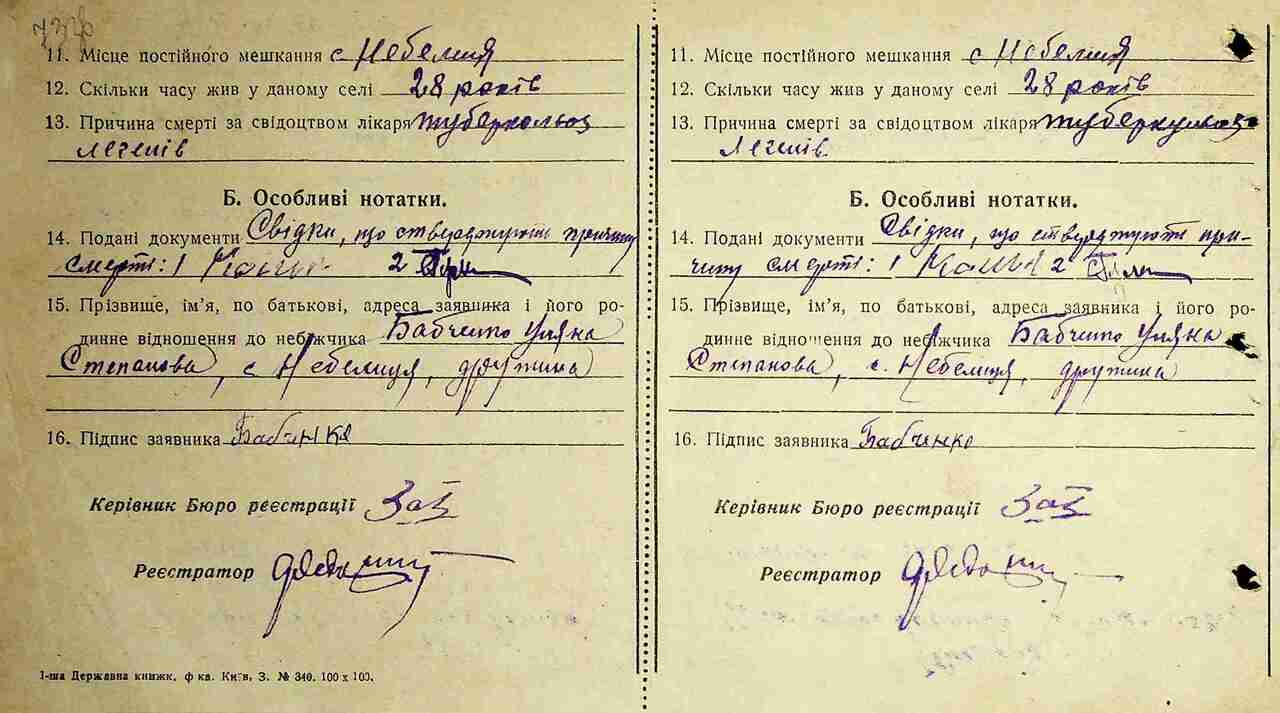 11. Місце постійного мешкання с Небелиця
12. Скільки часу жив у даному селі 28 років
13. Причина смерті за свідоцтвом лікаря туберкольоз
легенів
Б. Особливі нотатки.
14. Подані документи Свідки, що стверджують причину
смерті: 1 2
15. Прізвище, ім'я, по батькові, адреса заявника і його ро-
динне відношення до небіжчика Бабченко Уляна
Степанова, с. Небелиця, дружина
16. Підпис заявника Бабченко
Керівник Бюро реєстрації
Реєстратор
1-ша Державна книжк. ф-ка. Київ, З. № 340. 100 х 100.
11. Місце постійного мешкання с Небелиця
12. Скільки часу жив у даному селі 28 років
13. Причина смерті за свідоцтвом лікаря туберкульоз
легенів
Б. Особливі нотатки.
14. Подані документи Свідки, що стверджують при-
чину смерті: 1 2
15. Прізвище, ім'я, по батькові, адреса заявника і його ро-
динне відношення до небіжчика Бабченко Уляна
Степанова, с. Небелиця, дружина
16. Підпис заявника Бабченко
Керівник Бюро реєстрації
Реєстратор